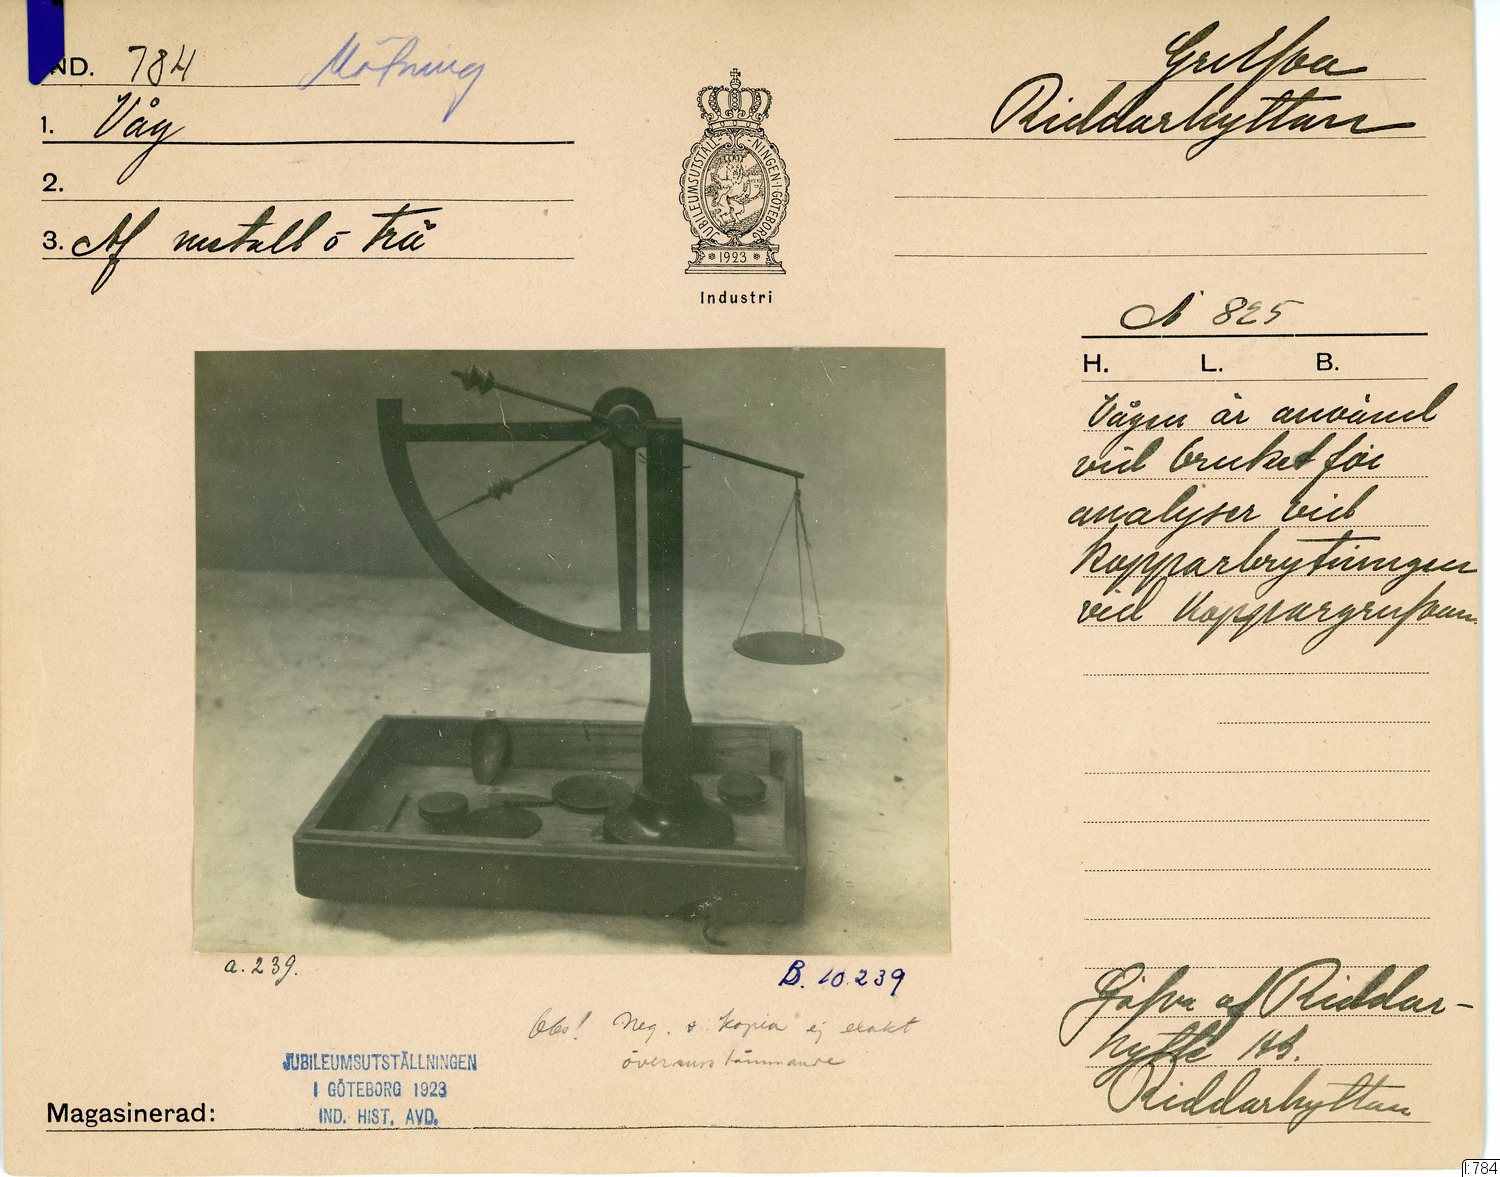 IND. 784
Mätning
Grufva
Riddarhyttan
1. Våg
2.
3. Af metall o trä
JUBILEUMSUTSTÄLL-NINGEN I GÖTEBORG
1923
Industri
N 825
H. L. B.
Vågen är använd
vid bruket för
analyser vid
kopparbrytningen
vid Koppargrufvan.
a. 239.
B. 10.239
Obs! Neg. o kopia ej exakt
överensstämmande
Gåfva af Riddar-
hytte AB.
Riddarhyttan
JUBILEUMSUTSTÄLLNINGEN
I GÖTEBORG 1923
IND. HIST. AVD.
Magasinerad:
I:784